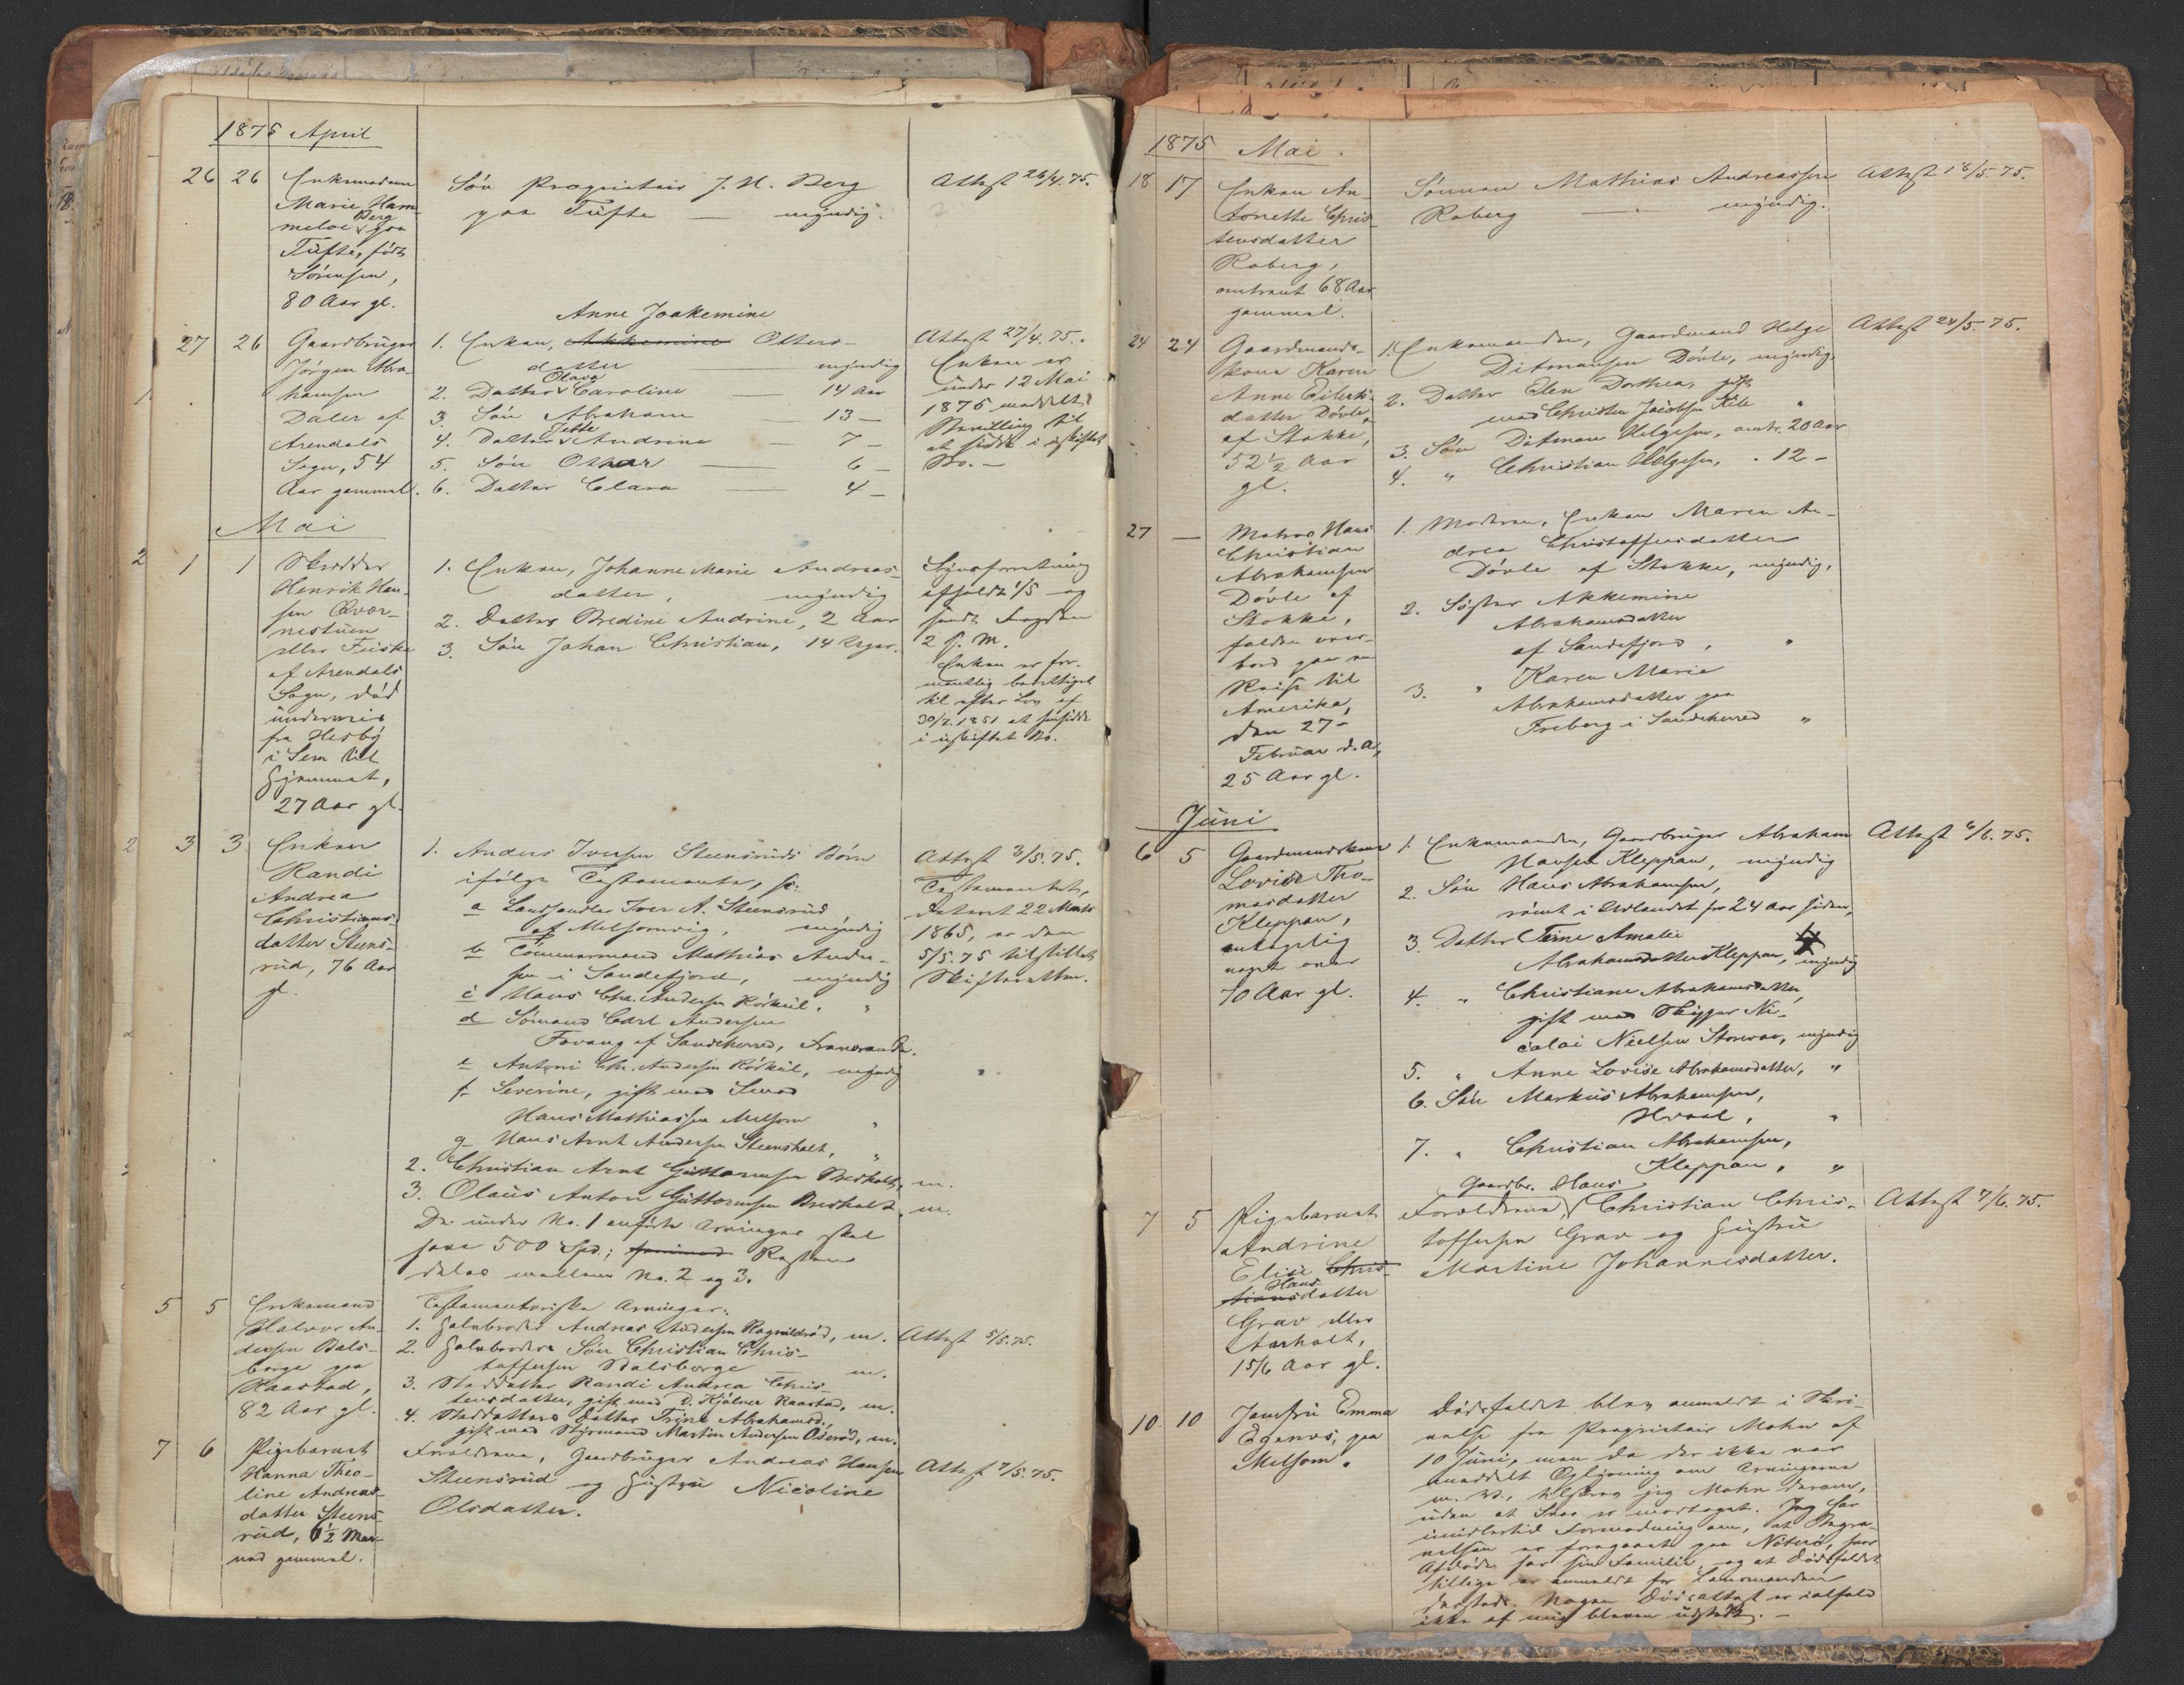 1875 April
26 26 Enkemadam
Marie Ham-
Berg
meloe paa
Tufte, født
Sörensen,
80 Aar gl.
Sön Proprietair J. N. Berg
paa Tufte — myndig.
Attest 26/4. 75.
27 26 Gaardbruger
Jörgen Abra-
hamsen
Daler af
Arendals
Sogn, 54
Aar gammel.
Anne Joakemine
1. Enken, Akkemine Otters-
datter — myndig
Olava
2. Datter Caroline — 14 Aar
3. Sön Abraham — 13 —
Jette
4. Datter Andrine — 7 —
5. Sön Othar — 6 —
6. Datter Clara — 4 —
Attest 27/4. 75.
Enken er
under 12 Mai
1875 meddelt
Bevilling til
at sidde i uskiftet
Bo. —
Mai
1 1 Skrædder
Henrik Han-
sen Qvær-
nestuen
eller Feiske
af Arendals
Sogn, död
underveis
fra Hesby
i Sem til
Hjemmet,
27 Aar gl.
1. Enken, Johanne Marie Andreas-
datter, myndig
2. Datter Bredine Andrine, 2 Aar
3. Sön Johan Christian, 14 Uger.
Synsforretning
afholdt 1/5 og
sendt Fogden
2 s. M.
Enken er for-
mentlig berettiget
til efter Lov af
30/7. 1851 at hensidde
i uskiftet Bo.
3 3 Enken
Randi
Andrea
Christians-
datter Steens-
rud, 76 Aar
gl.
1. Anders Iversen Steensruds Börn
ifölge Testamente, sc:
a Landhandler Iver A. Steensrud
af Melsomvig, myndig
b Tömmermand Mathias Ander-
sen i Sandefjord, myndig
c Hans Chr. Andersen Rörkul, "
d Sömand Carl Andersen
Fevang af Sandeherred, fraværende.
e Antoni Chr. Andersen Rörkul, myndig
f Severine, gift med Smed
Hans Mathiassen Melsom "
g Hans Arnt Andersen Steensholt, "
2. Christian Arnt Guttormsen Bresholt, m.
3. Olaus Anton Guttormsen Bresholt, m.
De under No. 1 anförte Arvinger skal
have 500 Spd.; Resten
deles mellem No. 2 og 3.
Attest 3/5. 75.
Testamentet,
dateret 22 Marts
1865, er den
5/5. 75 tilstillet
Skifteretten.
5 5 Enkemand
Halvor An-
dersen Bals-
berge paa
Raastad,
82 Aar gl.
Testamentariske Arvinger:
1. Halvbroder Andreas Andersen Ragnildröd, m.
2. Halvbroders Sön Christian Chris-
toffersen Balsberge — m.
3. Steddatter Randi Andrea Chris-
tensdatter, gift med D. Hjalmer Raastad, m.
4. Steddatters Datter Trine Abrahamsd.,
gift med Styrmand Martin Andersen Öseröd, m.
Attest 5/5. 75.
7 6 Pigebarnet
Hanna Theo-
line Andreas-
datter Steens-
rud, 1½ Maa-
ned gammel.
Forældrene, Gaardbruger Andreas Hansen
Steensrud og Hustru Nicoline
Olsdatter.
Attest 7/5. 75.
1875 Mai.
18 17 Enken An-
tonette Chris-
tensdatter
Roberg,
omtrent 68 Aar
gammel.
Sönnen Mathias Andreassen
Roberg — myndig.
Attest 18/5. 75.
24 24 Gaardmands-
kone Karen
Anne Eilerts-
datter Dövle
af Stokke,
52½ Aar
gl.
1. Enkemanden, Gaardmand Helge
Ditmansen Dövle, myndig.
2. Datter Elen Dorthea, gift
med Christen Jacobsen Kile "
3. Sön Ditman Helgesen, omtr. 20 Aar
4. " Christian Helgesen, " 12 —
Attest 24/5. 75.
27 — Matros Hans
Christian
Abrahamsen
Dövle af
Stokke,
falden over-
bord paa en
Reise til
Amerika,
den 27-
Februar d. A.,
25 Aar gl.
1. Moderen, Enken Maren An-
drea Christoffersdatter
Dövle af Stokke, myndig,
2. Söster Akkemine
Abrahamsdatter
af Sandefjord, "
3. " Karen Marie
Abrahamsdatter paa
Freberg i Sandeherred "
Juni
6 5 Gaardmandskone
Lovise Tho-
masdatter
Kleppan,
antagelig
noget over
70 Aar gl.
1. Enkemanden, Gaardbruger Abraham
Hansen Kleppan, myndig
2. Sön Hans Abrahamsen,
römt i Udlandet for 24 Aar siden,
3. Datter Trine Amalie
Abrahamsdatter Kleppan, myndig
4. " Christiane Abrahamsdatter,
gift med Skipper Ni-
colai Nielsen Storevar, myndig
5. " Anne Lovise Abrahamsdatter, "
6. Sön Markus Abrahamsen,
Hvaal, "
7. " Christian Abrahamsen,
Kleppan, "
Attest 6/6. 75.
7 5 Pigebarnet
Andrine
Elise Chris-
Hans
tiansdatter
Grav eller
Aarholt,
15/6 Aar gl.
Gaardbr. Hans
Forældrene, Christian Chris-
toffersen Grav og Hustru
Martine Johannesdatter.
Attest 7/6. 75.
10 10 Jomfru Emma
Egenæs, paa
Melsom.
Dödsfaldet blev anmeldt i Skri-
velse fra Proprietair Mohn af
10 Juni, men da der ikke var
meddelt Oplysning om Arvingerne
m. V., tilskrev jeg Mohn derom,
uden at Svar er modtaget. Jeg har
imidlertid Formodning om, at Begra-
velsen er foregaaet paa Nöterö, hvor
Afdöde har sin Familie, og at Dödsfaldet
tillige er anmeldt for Lensmanden
dersteds. Nogen Dödsattest er ialfald
ikke af mig bleven udstedt. —